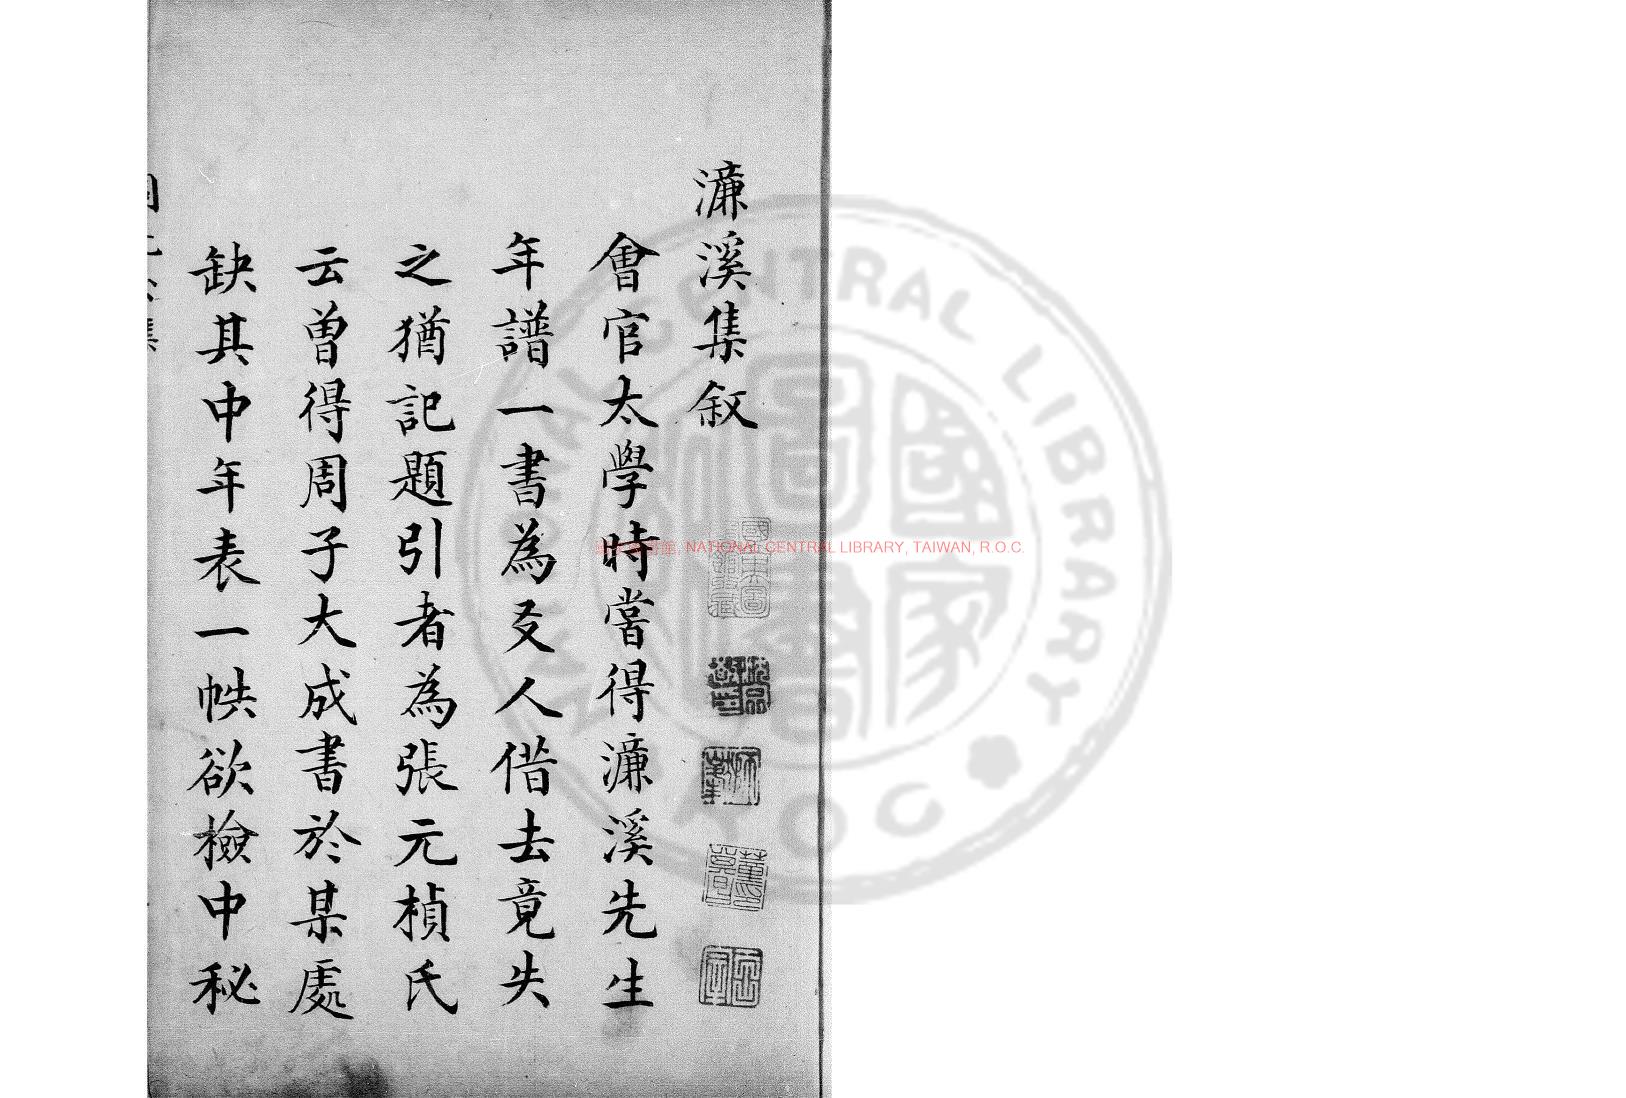 濂溪集叙
會官太學時嘗得濂溪先生
年譜一書為友人借去竟失
之猶記題引者為張元楨氏
云曾得周子大成書於某處
缺其中年表一帙欲檢中秘
NATIONAL CENTRAL LIBRARY, TAIWAN, R.O.C.
NATIONAL CENTRAL LIBRARY
國家圖書